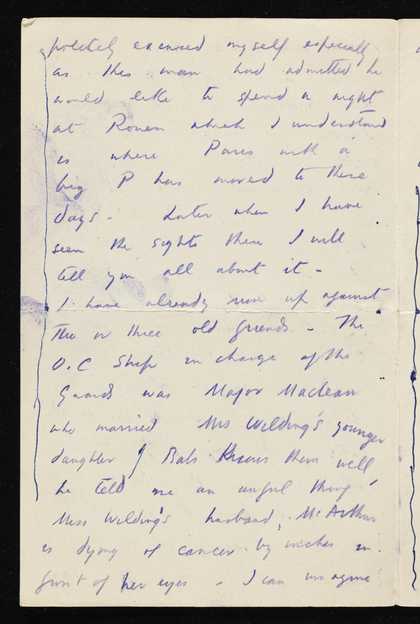 politely excused myself especially
as this man had admitted he
would like to spend a night
at Rouen which I understand
is where Paris with a
big P has moved to these
days - Later when I have
seen the sights there I will
tell you all about it -
I have already run up against
two or three old friends - The
O.C Ship in charge of the
Guards was Major Maclean
who married Mrs Welding's younger
daughter Bab knows them well,
he told me an awful thing,
Miss Welding's husband, McArthur
is dying of cancer by inches in
front of her eyes - I can imagine